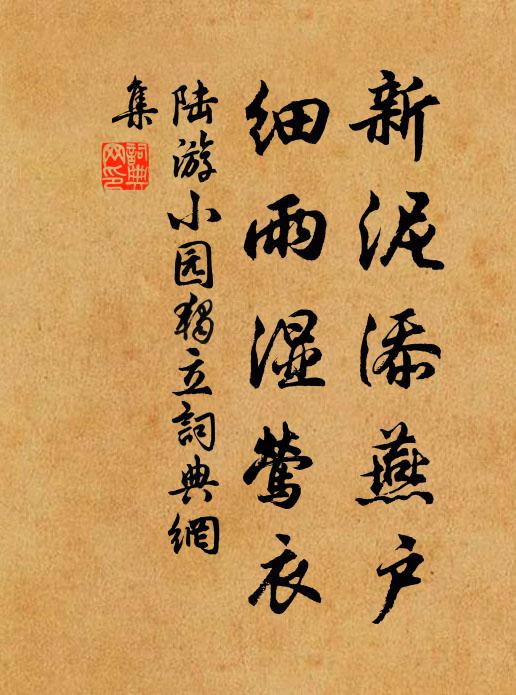 新泥添燕户
细雨湿莺衣
陆游小园獨立詞典網
集
詞典網印